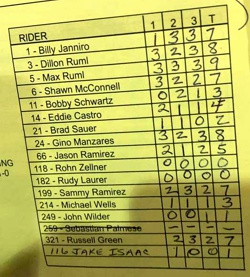 RIDER 1 2 3 T
1 - Billy Janniro 1 3 3 7
3 - Dillon Ruml 3 2 3 8
5 - Max Ruml 3 3 3 9
6 - Shawn McConnell 3 2 2 7
11 - Bobby Schwartz 0 2 1 3
14 - Eddie Castro 2 1 1 4
21 - Brad Sauer 1 1 0 2
24 - Gino Manzares 3 2 3 8
66 - Jason Ramirez 2 1 2 5
118 - Rohn Zellner 0 0 0 0
182 - Rudy Laurer 0 0 0 0
199 - Sammy Ramirez 2 3 2 7
214 - Michael Wells 1 1 1 3
249 - John Wilder 0 0 1 1
259 - Sebastian Palmese
321 - Russell Green 2 3 2 7
116 JAKE ISAAC 1 0 0 1
NG
-0